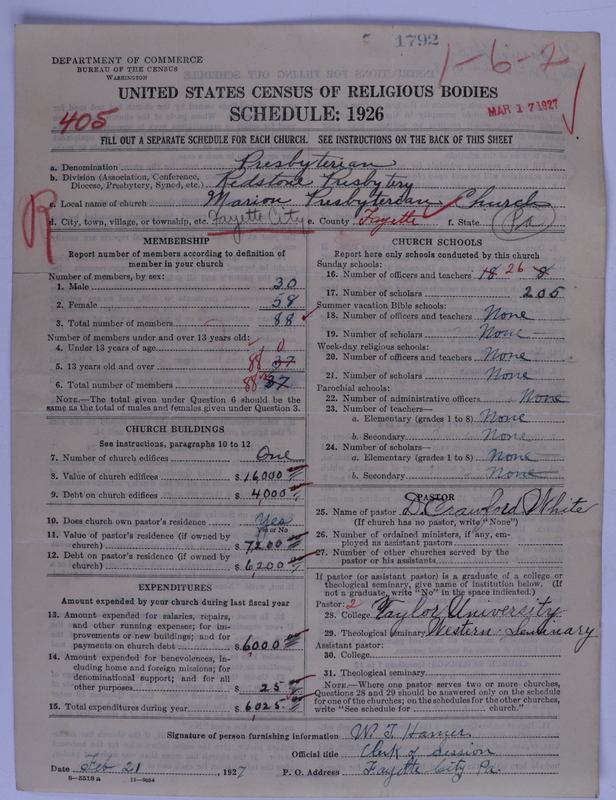 1792
1-6-2
DEPARTMENT OF COMMERCE
BUREAU OF THE CENSUS
WASHINGTON
UNITED STATES CENSUS OF RELIGIOUS BODIES
SCHEDULE: 1926
MAR 17 1927
405
FILL OUT A SEPARATE SCHEDULE FOR EACH CHURCH. SEE INSTRUCTIONS ON THE BACK OF THIS SHEET
a. Denomination Presbyterian
b. Division (Association, Conference, Diocese, Presbytery, Synod, etc.) Redstone Presbytery
c. Local name of church Marion Presbyterian Church
d. City, town, village, or township, etc. Fayette City e. County Fayette f. State Pa
R
MEMBERSHIP
Report number of members according to definition of
member in your church
Number of members, by sex:
1. Male 30
2. Female 58
3. Total number of members 88
Number of members under and over 13 years old:
4. Under 13 years of age 0
5. 13 years old and over 88 37
6. Total number of members 88 37
NOTE.—The total given under Question 6 should be
same as the total of males and females given under Question 3.
CHURCH BUILDINGS
See instructions, paragraphs 10 to 12
7. Number of church edifices One
8. Value of church edifices $ 16000
9. Debt on church edifices $ 4000
10. Does church own pastor's residence Yes
Yes or No
11. Value of pastor's residence (if owned by
church) $ 7200
12. Debt on pastor's residence (if owned by
church) $ 6200
EXPENDITURES
Amount expended by your church during last fiscal year
13. Amount expended for salaries, repairs,
and other running expenses; for im-
provements or new buildings; and for
payments on church debt $ 6000
14. Amount expended for benevolences, in-
cluding home and foreign missions; for
denominational support; and for all
other purposes $ 25
15. Total expenditures during year $ 6025
CHURCH SCHOOLS
Report here only schools conducted by this church
Sunday schools:
16. Number of officers and teachers 18 26 8
17. Number of scholars 205
Summer vacation Bible schools:
18. Number of officers and teachers None
19. Number of scholars None
Week-day religious schools:
20. Number of officers and teachers None
21. Number of scholars None
Parochial schools:
22. Number of administrative officers None
23. Number of teachers—
a. Elementary (grades 1 to 8) None
b. Secondary None
24. Number of scholars—
a. Elementary (grades 1 to 8) None
b. Secondary None
PASTOR
25. Name of pastor D. Crawford White
(If church has no pastor, write "None")
26. Number of ordained ministers, if any, em-
ployed as assistant pastors
27. Number of other churches served by the
pastor or his assistants
If pastor (or assistant pastor) is a graduate of a college or
theological seminary, give name of institution below. (If
not a graduate, write "No" in the space indicated.)
Pastor: 2
28. College Taylor University
29. Theological seminary Western Seminary
Assistant pastor:
30. College
31. Theological seminary
NOTE.—Where one pastor serves two or more churches,
Questions 28 and 29 should be answered only on the schedule
for one of the churches; on the schedules for the other churches,
write "See schedule for church."
Signature of person furnishing information W. J.
Official title Clerk of Session
Date Feb 21, 1927 P. O. Address Fayette City Pa.
8—5518 a 11—9054